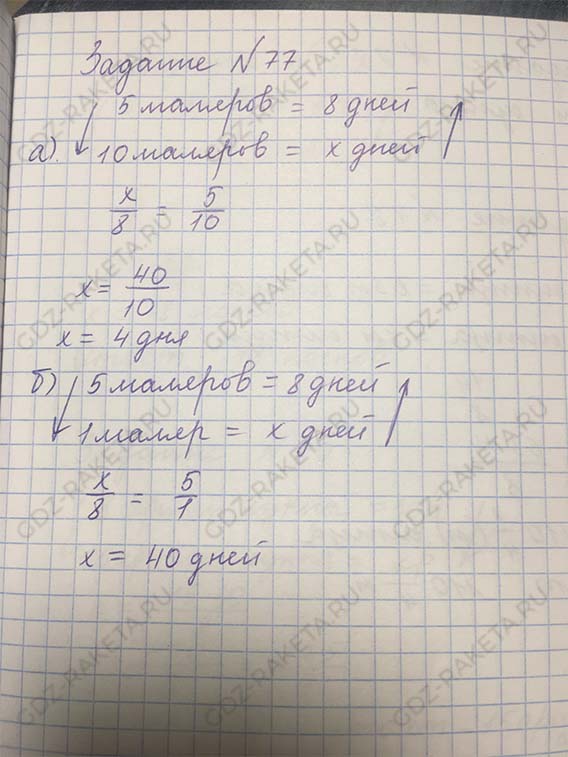 Задание №77
5 маляров = 8 дней
а). 10 маляров = x дней
x/8 = 5/10
x = 40/10
x = 4 дня
б) 5 маляров = 8 дней
1 маляр = x дней
x/8 = 5/1
x = 40 дней
GDZ-RAKETA.RU